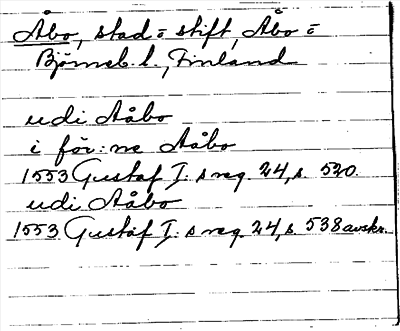 Åbo, stad o stift, Åbo o
Björneb. l., Finland
udi Aåbo
i för:ne Aåbo
1553 Gustaf I:s reg. 24, s. 520.
udi Aåbo
1553 Gustaf I:s reg. 24, s. 538 avskr.